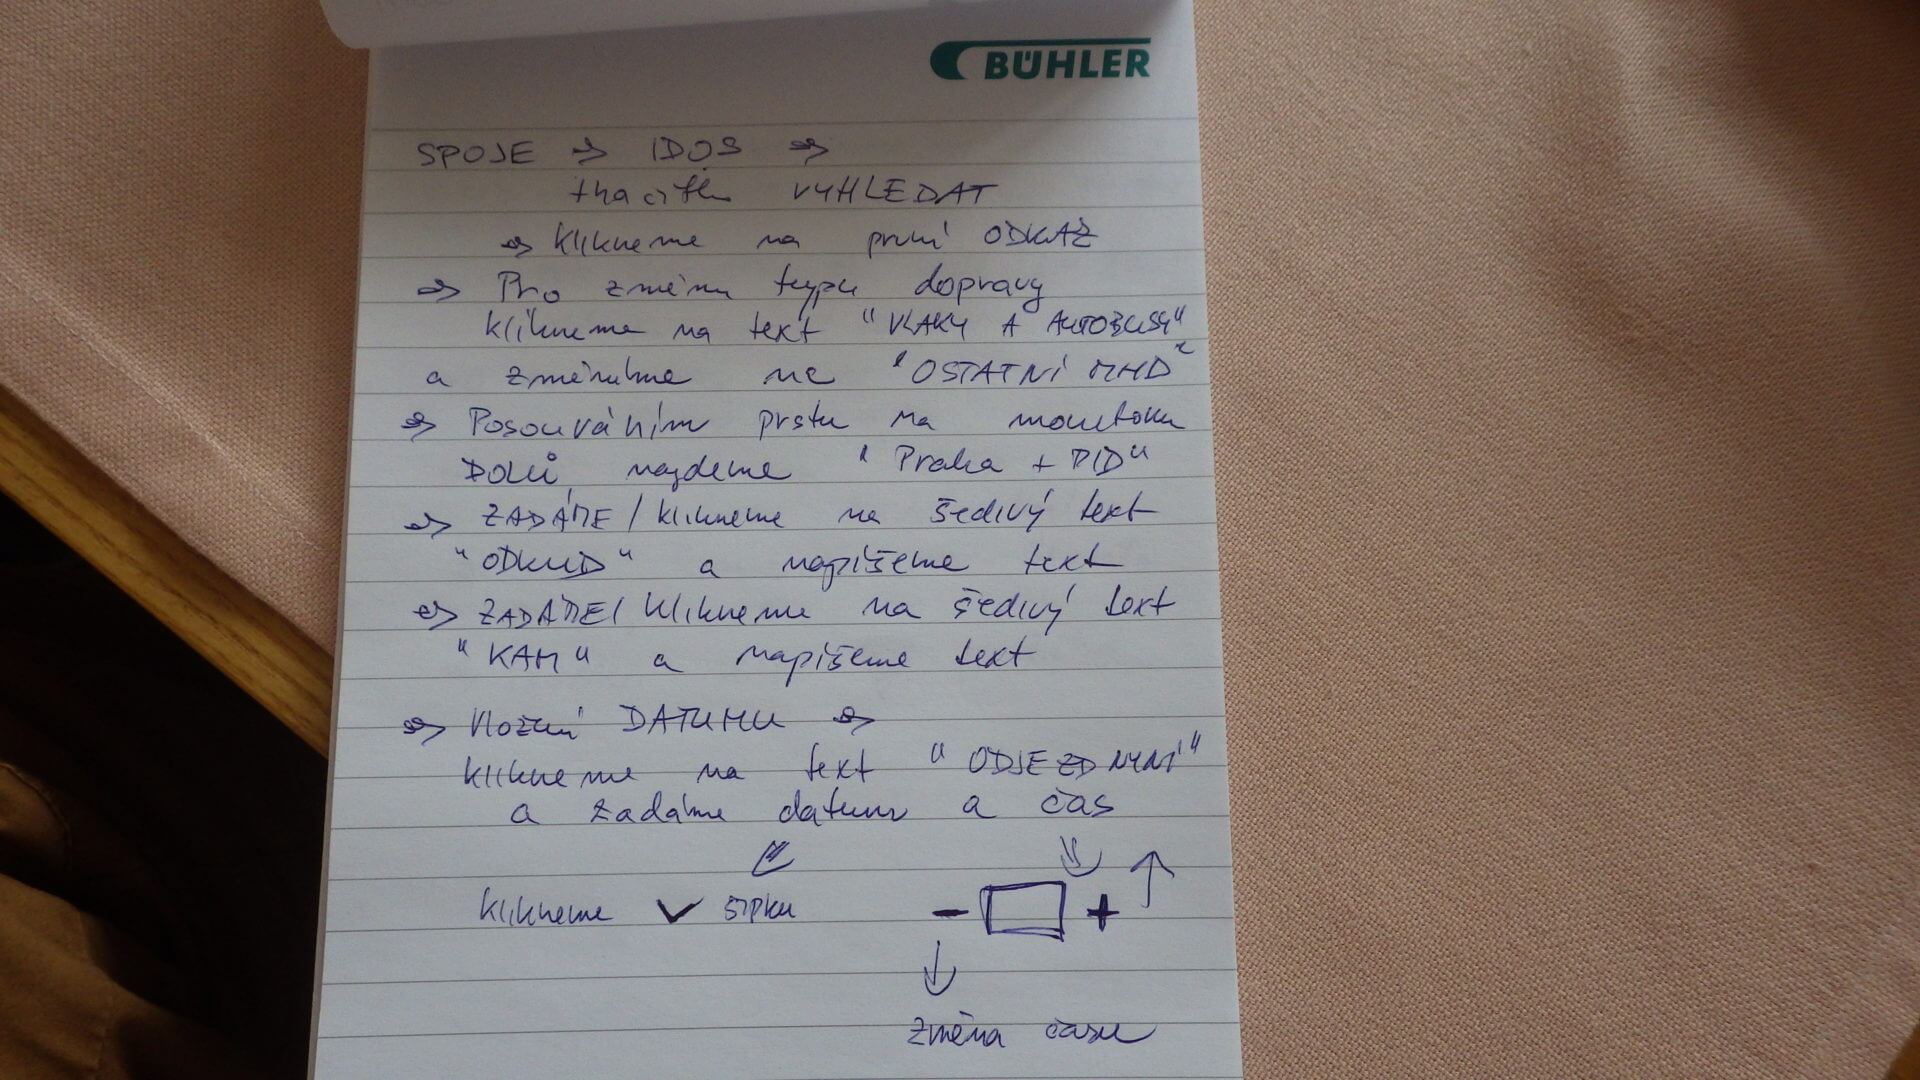 BÜHLER
SPOJE ⇒ IDOS ⇒
tlačítko VYHLEDAT
⇒ klikneme na první ODKAZ
⇒ Pro změnu typu dopravy
klikneme na text "VLAKY A AUTOBUSY"
a změníme na "OSTATNÍ MHD"
⇒ Posouváním prstu na monitoru
DOLŮ najdeme "Praha + PID"
⇒ ZADÁME / klikneme na šedivý text
"ODKUD" a napíšeme text
⇒ ZADÁME / klikneme na šedivý text
"KAM" a napíšeme text
⇒ Vložení DATUMU ⇒
klikneme na text "ODJEZD NYNÍ"
a zadáme datum a čas
klikneme ✓ šipku - +
změna času